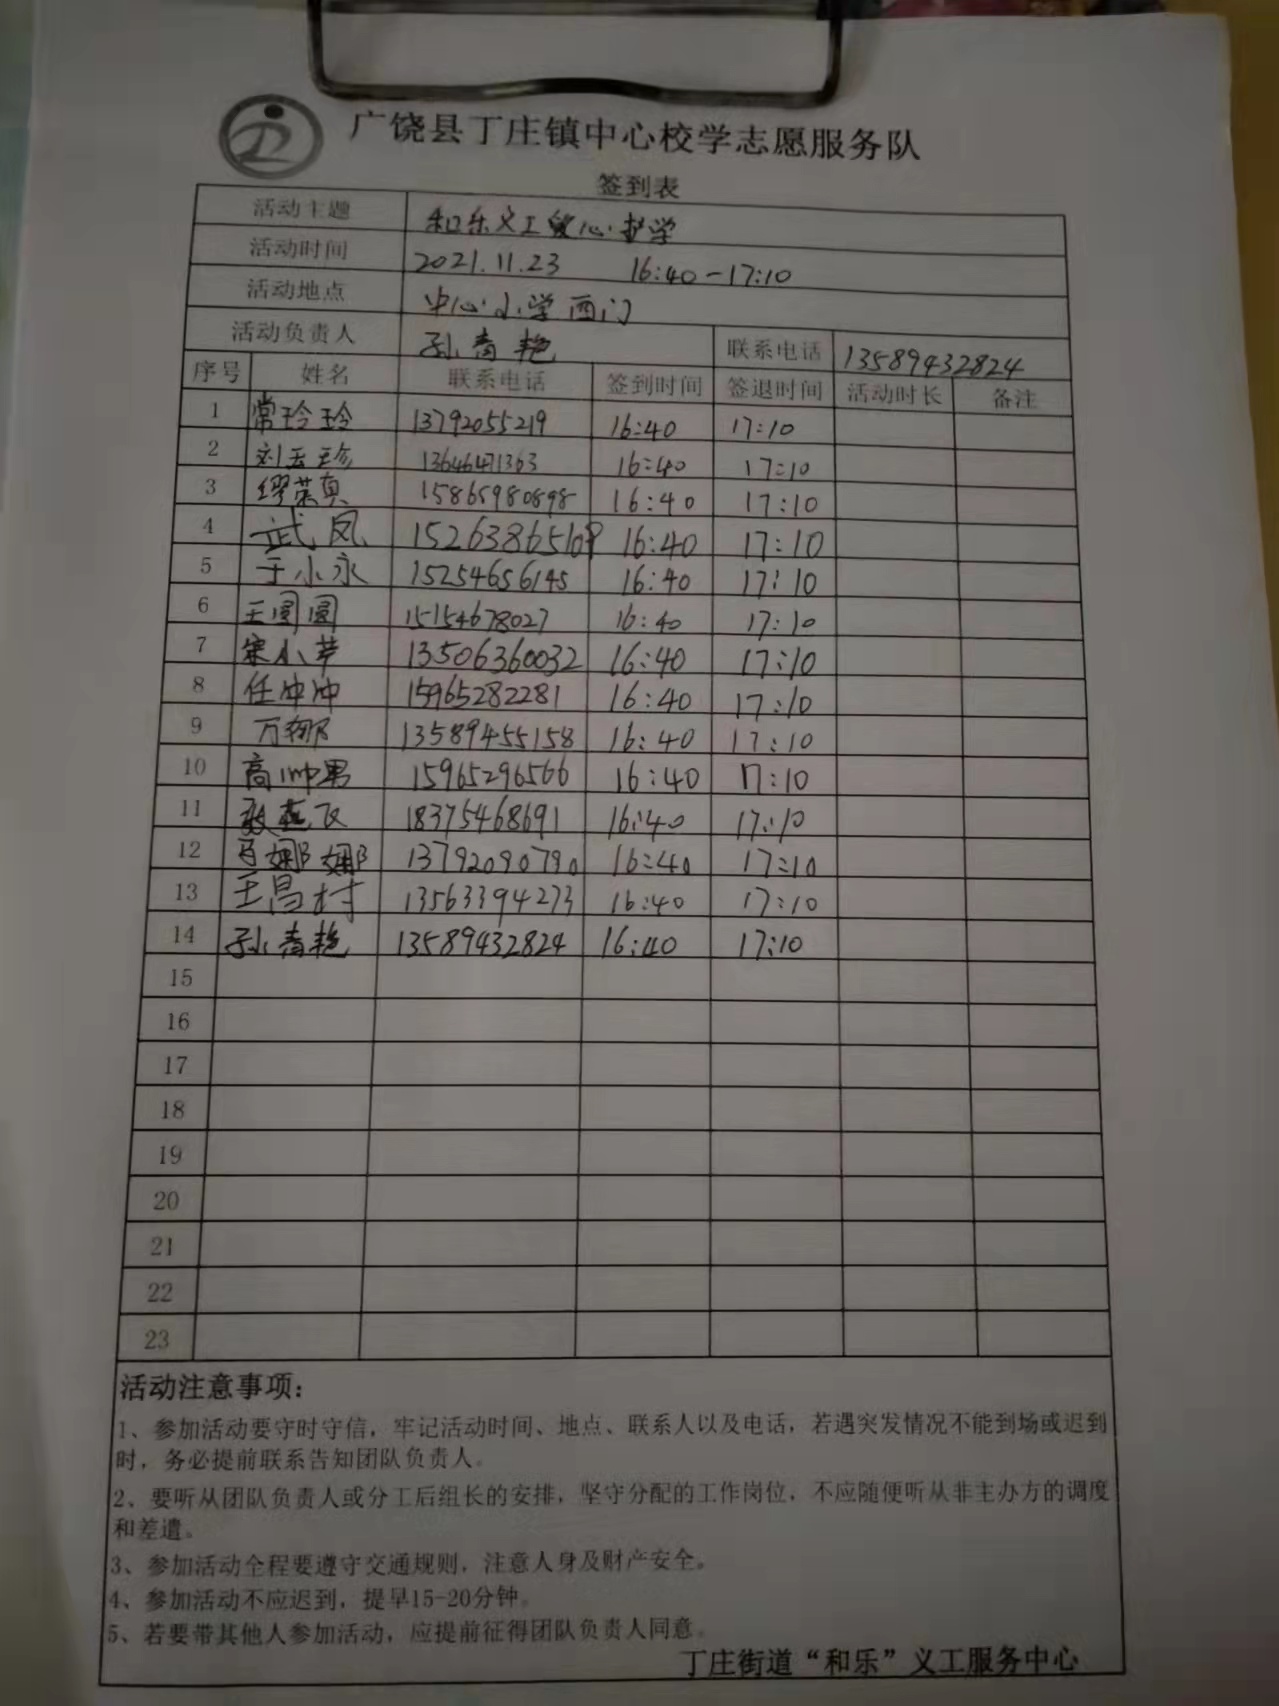 广饶县丁庄镇中心校学志愿服务队
签到表
活动主题 和乐义工爱心护学
活动时间 2021.11.23 16:40-17:10
活动地点 中心小学西门
活动负责人 孙青艳 联系电话 13589432824
序号 姓名 联系电话 签到时间 签退时间 活动时长 备注
1 常玲玲 13792055219 16:40 17:10
2 刘玉珍 13646471363 16:40 17:10
3 缪荣真 15865980898 16:40 17:10
4 武凤 16:40 17:10
5 于小永 15254656145 16:40 17:10
6 王圆圆 15154678027 16:40 17:10
7 宋小苹 13506360032 16:40 17:10
8 任冲冲 15965282281 16:40 17:10
9 万娜 13589455158 16:40 17:10
10 高帅男 15965296566 16:40 17:10
11 张燕飞 18375468691 16:40 17:10
12 马娜娜 13792090790 16:40 17:10
13 王昌村 13563394273 16:40 17:10
14 孙青艳 13589432824 16:40 17:10
15
16
17
18
19
20
21
22
23
活动注意事项：
1、参加活动要守时守信，牢记活动时间、地点、联系人以及电话，若遇突发情况不能到场或迟到
时，务必提前联系告知团队负责人。
2、要听从团队负责人或分工后组长的安排，坚守分配的工作岗位，不应随便听从非主办方的调度
和差遣。
3、参加活动全程要遵守交通规则，注意人身及财产安全。
4、参加活动不应迟到，提早15-20分钟。
5、若要带其他人参加活动，应提前征得团队负责人同意。
丁庄街道“和乐”义工服务中心